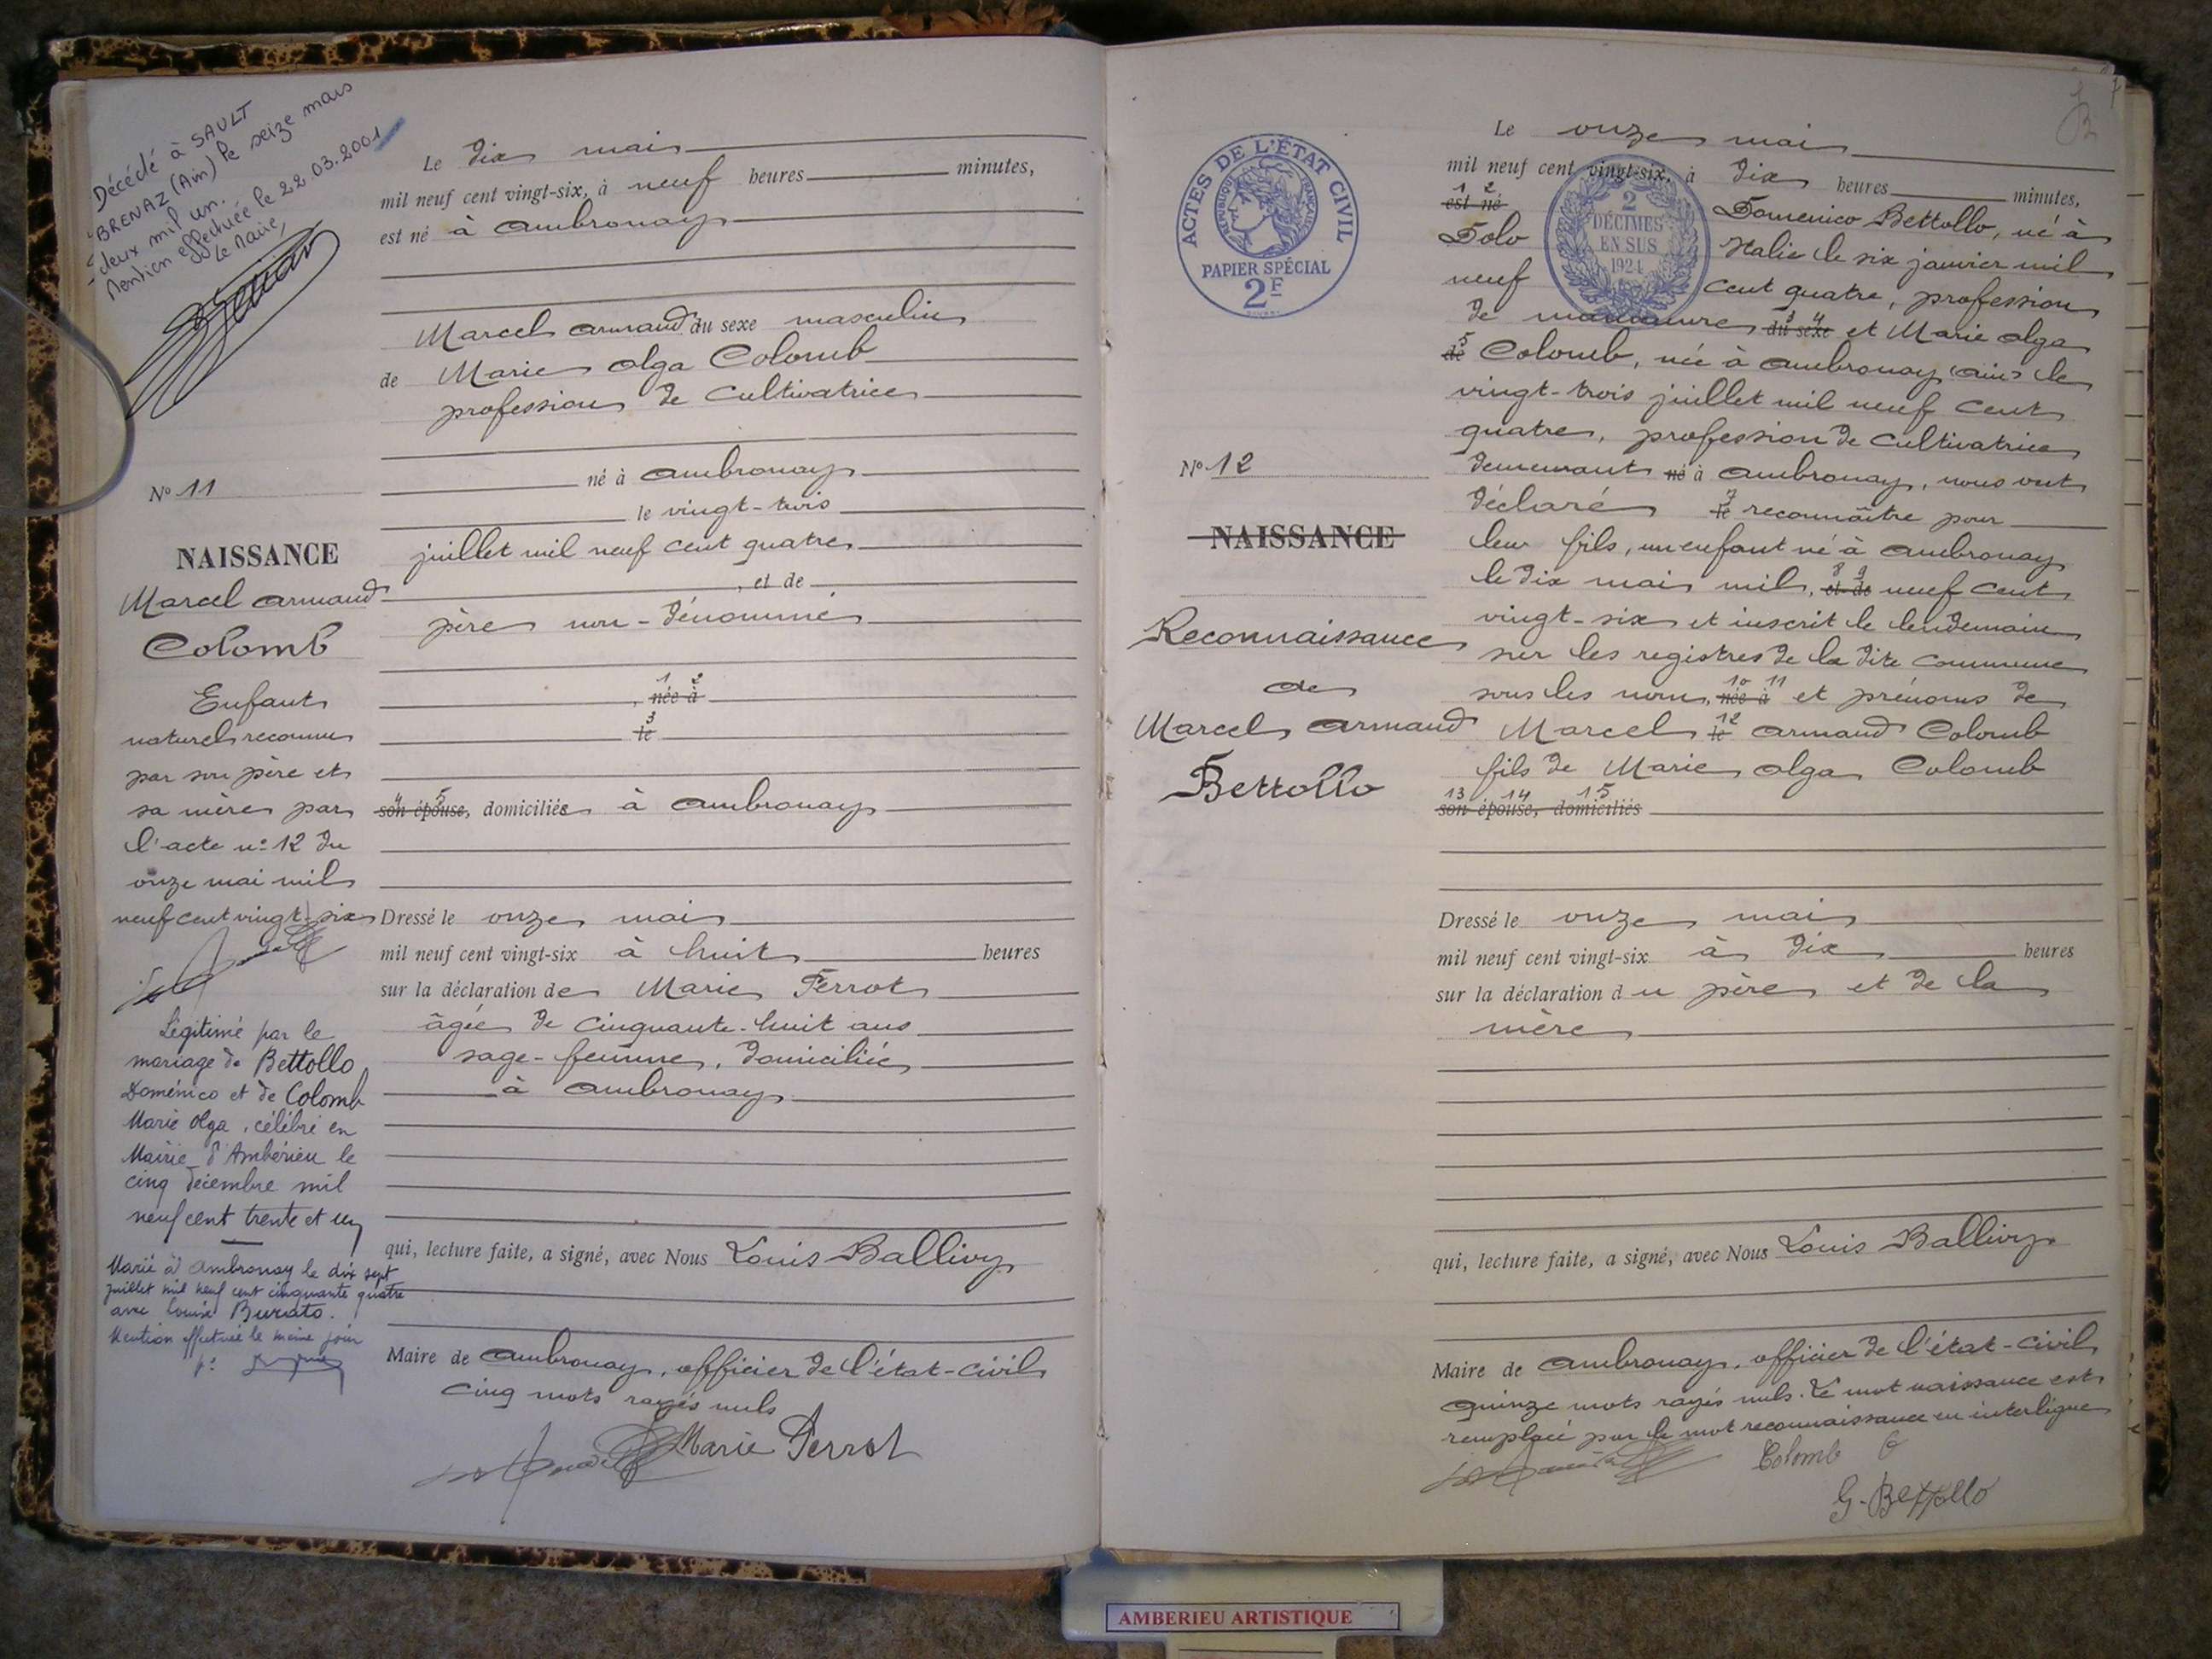 Décédé à SAULT
BRENAZ (Ain) le seize mars
deux mil un.
Mention effectuée le 22.03.2001
Le Maire,
N° 11
NAISSANCE
Marcel Armand
Colomb
Enfant
naturel reconnu
par son père et
sa mère par
l'acte n° 12 du
onze mai mil
neuf cent vingt-six
Légitimé par le
mariage de Bettollo
Doménico et de Colomb
Marie Olga, célébré en
Mairie d'Ambérieu le
cinq décembre mil
neuf cent trente et un
Marié à Ambronay le dix sept
juillet mil neuf cent cinquante quatre
avec Louise Burato.
Mention effectuée le même jour
Le dix mai
mil neuf cent vingt-six, à neuf heures minutes,
est né à Ambronay
Marcel Armand du sexe masculin
de Marie Olga Colomb
profession de cultivatrice
né à Ambronay
le vingt-trois
juillet mil neuf cent quatre
, et de
père non-dénommé
1 2
, née à
3
le
4 5
son épouse, domiciliée à Ambronay
Dressé le onze mai
mil neuf cent vingt-six à huit heures
sur la déclaration de Marie Perrot
âgée de cinquante-huit ans
sage-femme, domiciliée
à Ambronay
qui, lecture faite, a signé, avec Nous Louis Ballivy
Maire de Ambronay, officier de l'état-civil
cinq mots rayés nuls
Marie Perrot
ACTES DE L'ÉTAT CIVIL
RÉPUBLIQUE FRANÇAISE
PAPIER SPÉCIAL
2F
2
DÉCIMES
EN SUS
1924
N° 12
NAISSANCE
Reconnaissance
de
Marcel Armand
Bettollo
Le onze mai
mil neuf cent vingt-six, à dix heures minutes,
1 2
est né Domenico Bettollo, né à
Dolo Italie le six janvier mil
neuf cent quatre, profession
3 4
de manœuvre du sexe et Marie Olga
5
de Colomb, née à Ambronay (Ain) le
vingt-trois juillet mil neuf cent
quatre, profession de cultivatrice
demeurant né à Ambronay, nous ont
7
déclaré le reconnaître pour
leur fils, un enfant né à Ambronay
8 9
le dix mai mil, et de neuf cent
vingt-six et inscrit le lendemain
sur les registres de la dite commune
10 11
sous les nom, née à et prénoms de
12
Marcel le Armand Colomb
fils de Marie Olga Colomb
13 14 15
son épouse, domiciliés
Dressé le onze mai
mil neuf cent vingt-six à dix heures
sur la déclaration du père et de la
mère
qui, lecture faite, a signé, avec Nous Louis Ballivy
Maire de Ambronay, officier de l'état-civil
Quinze mots rayés nuls. Le mot naissance est
remplacé par le mot reconnaissance en interligne
Colomb O
G. Bettollo
AMBERIEU ARTISTIQUE